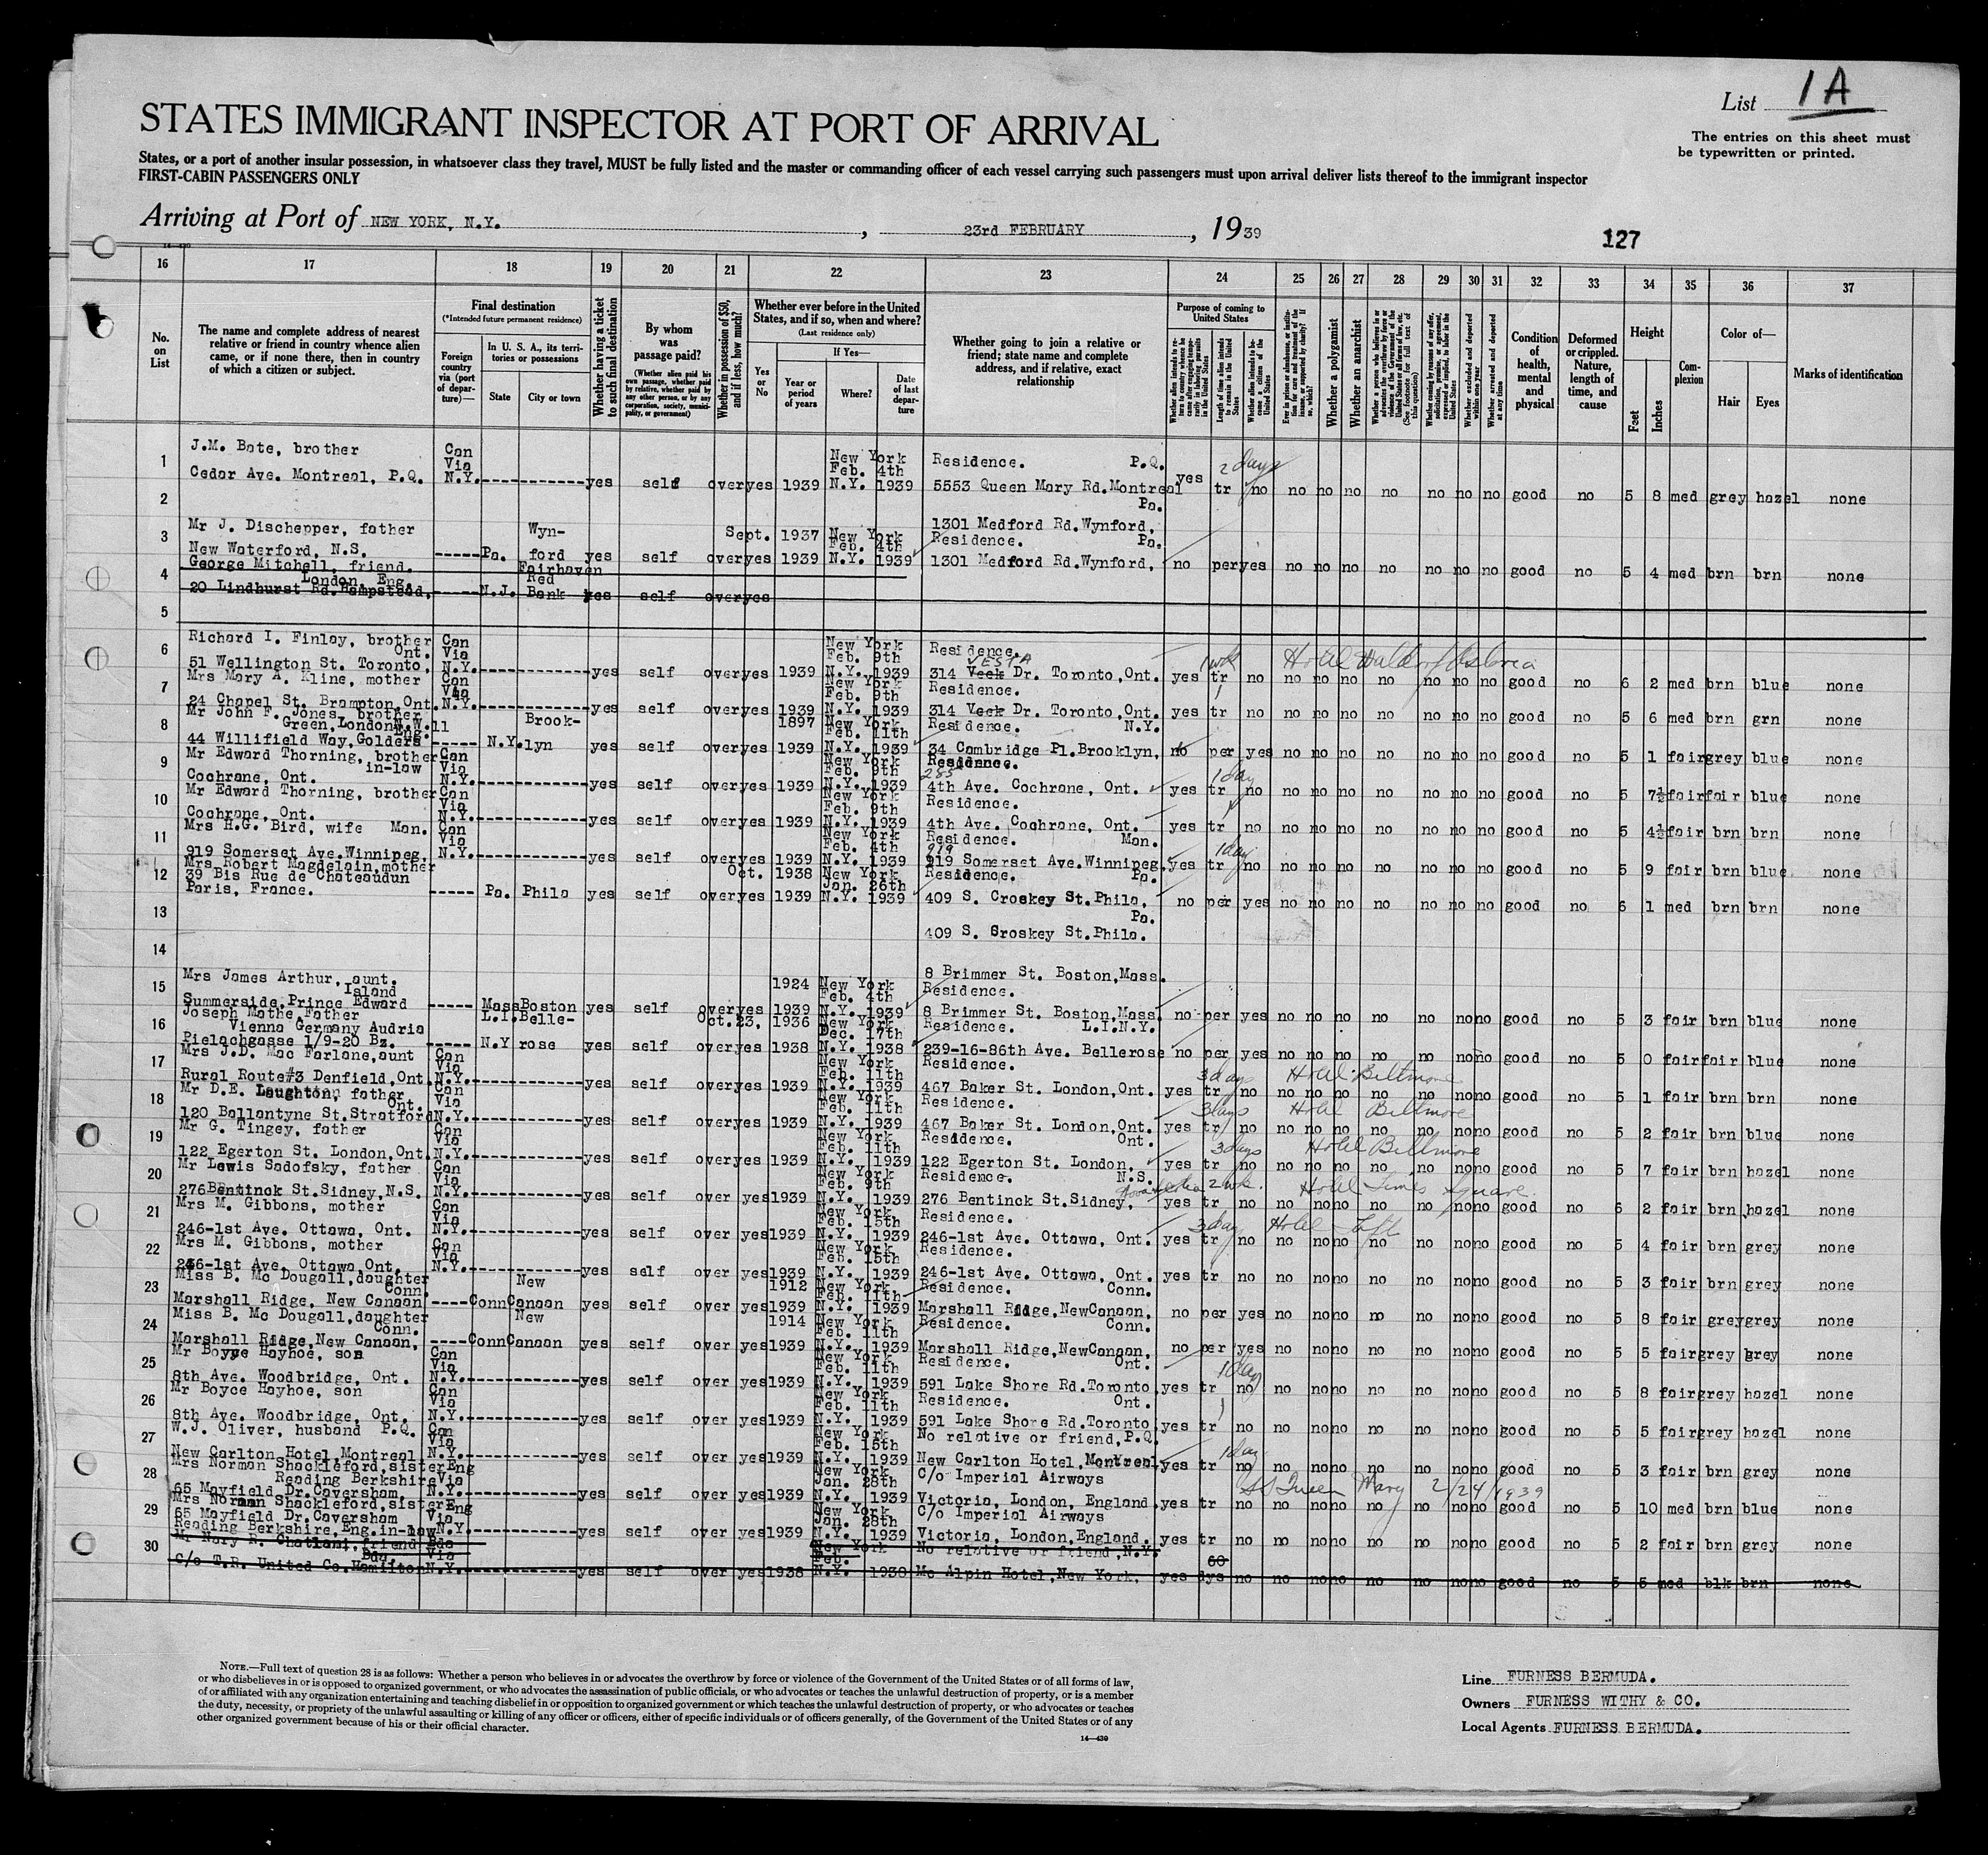 List 1A
STATES IMMIGRANT INSPECTOR AT PORT OF ARRIVAL
The entries on this sheet must
be typewritten or printed.
States, or a port of another insular possession, in whatsoever class they travel, MUST be fully listed and the master or commanding officer of each vessel carrying such passengers must upon arrival deliver lists thereof to the immigrant inspector
FIRST-CABIN PASSENGERS ONLY
Arriving at Port of NEW YORK, N.Y. , 23rd FEBRUARY , 1939
127
14-430
16 17 18 19 20 21 22 23 24 25 26 27 28 29 30 31 32 33 34 35 36 37
No. on List
The name and complete address of nearest relative or friend in country whence alien came, or if none there, then in country of which a citizen or subject.
Final destination
(*Intended future permanent residence)
Foreign country via (port of departure)—
In U. S. A., its territories or possessions
State
City or town
Whether having a ticket to such final destination
By whom was passage paid?
(Whether alien paid his own passage, whether paid by relative, whether paid by any other person, or by any corporation, society, municipality, or government)
Whether in possession of $50, and if less, how much?
Whether ever before in the United States, and if so, when and where?
(Last residence only)
Yes or No
If Yes—
Year or period of years
Where?
Date of last departure
Whether going to join a relative or friend; state name and complete address, and if relative, exact relationship
Purpose of coming to United States
Whether alien intends to return to country whence he came after engaging temporarily in laboring pursuits in the United States
Length of time alien intends to remain in the United States
Whether alien intends to become a citizen of the United States
Ever in prison or almshouse, or institution for care and treatment of the insane, or supported by charity? If so, which?
Whether a polygamist
Whether an anarchist
Whether a person who believes in or advocates the overthrow by force or violence of the Government of the United States or all forms of law, etc. (See footnote for full text of this question)
Whether coming by reason of any offer, solicitation, promise, or agreement, expressed or implied, to labor in the United States
Whether excluded and deported within one year
Whether arrested and deported at any time
Condition of health, mental and physical
Deformed or crippled. Nature, length of time, and cause
Height
Feet
Inches
Complexion
Color of—
Hair
Eyes
Marks of identification
J.M. Bate, brother Can New York Residence. P.Q. 2 days
1 Via Feb. 4th
Cedar Ave. Montreal, P.Q. N.Y. yes self over yes 1939 N.Y. 1939 5553 Queen Mary Rd. Montreal yes tr no no no no no no no no good no 5 8 med grey hazel none
2 Pa.
Mr J. Dischepper, father Wyn- Sept. 1937 New York 1301 Medford Rd. Wynford,
3 Feb. 4th Residence. Pa.
New Waterford, N.S. Pa. ford yes self over yes 1939 N.Y. 1939 1301 Medford Rd. Wynford, no per yes no no no no no no no good no 5 4 med brn brn none
George Mitchell, friend. Fairhaven
4 London, Eng. Red
20 Lindhurst Rd. Hampstead, N.J. Bank yes self over yes
5
Richard I. Finlay, brother Can New York Residence.
6 Ont. Via Feb. 9th VESTA 1 wk Hotel Waldorf Astoria
51 Wellington St. Toronto, N.Y. yes self over yes 1939 N.Y. 1939 314 Veek Dr. Toronto, Ont. yes tr no no no no no no no no good no 6 2 med brn blue none
Mrs Mary A. Kline, mother Can New York Residence.
7 Via Feb. 9th
24 Chapel St. Brampton, Ont. N.Y. yes self over yes 1939 N.Y. 1939 314 Veek Dr. Toronto, Ont. yes tr no no no no no no no no good no 5 6 med brn grn none
Mr John F. Jones, brother 1897 New York Residence. N.Y.
8 Green, London N.W. 11 Eng. Brook- Feb. 11th
44 Willifield Way, Golders N.Y. lyn yes self over yes 1939 N.Y. 1939 34 Cambridge Pl. Brooklyn, no per yes no no no no no no no good no 5 1 fair grey blue none
Mr Edward Thorning, brother Can New York Residence.
9 in-law Via Feb. 9th 285 1 day
Cochrane, Ont. N.Y. yes self over yes 1939 N.Y. 1939 4th Ave. Cochrane, Ont. yes tr no no no no no no no no good no 5 7½ fair fair blue none
Mr Edward Thorning, brother Can New York Residence.
10 Via Feb. 9th
Cochrane, Ont. N.Y. yes self over yes 1939 N.Y. 1939 4th Ave. Cochrane, Ont. yes tr no no no no no no no no good no 5 4½ fair brn brn none
Mrs H.G. Bird, wife Man. Can New York Residence. Man.
11 Via Feb. 4th 919 1 day
919 Somerset Ave. Winnipeg, N.Y. yes self over yes 1939 N.Y. 1939 919 Somerset Ave. Winnipeg, yes tr no no no no no no no no good no 5 9 fair brn blue none
Mrs Robert Magdelain, mother Oct. 1938 New York Residence. Pa.
12 39 Bis Rue de Chateaudun Jan. 26th
Paris, France. Pa. Phila yes self over yes 1939 N.Y. 1939 409 S. Croskey St. Phila, no per yes no no no no no no no good no 5 1 med brn brn none
13 Pa.
409 S. Croskey St. Phila.
14
8 Brimmer St. Boston, Mass.
Mrs James Arthur, aunt. 1924 New York Residence.
15 Island Feb. 4th
Summerside, Prince Edward Mass Boston yes self over yes 1939 N.Y. 1939 8 Brimmer St. Boston, Mass. no per yes no no no no no no no good no 5 3 fair brn blue none
Joseph Mathe, Father L.I. Belle- Oct. 23, 1936 New York Residence. L.I.N.Y.
16 Vienna Germany Audria Dec. 17th
Pielachgasse 1/9-20 Bz. N.Y rose yes self over yes 1938 N.Y. 1938 239-16-86th Ave. Bellerose no per yes no no no no no no no good no 5 0 fair fair blue none
Mrs J.D. Mac Farlane, aunt Can New York Residence.
17 Via Feb. 11th 3 days Hotel Biltmore
Rural Route #3 Denfield, Ont. N.Y. yes self over yes 1939 N.Y. 1939 467 Baker St. London, Ont. yes tr no no no no no no no no good no 5 1 fair brn brn none
Mr D.E. Laughton, father Can New York Residence.
18 Ont. Via Feb. 11th 3 days Hotel Biltmore
120 Ballantyne St. Stratford N.Y. yes self over yes 1939 N.Y. 1939 467 Baker St. London, Ont. yes tr no no no no no no no no good no 5 2 fair brn blue none
Mr G. Tingey, father Can New York Residence. Ont.
19 Via Feb. 11th 3 days Hotel Biltmore
122 Egerton St. London, Ont. N.Y. yes self over yes 1939 N.Y. 1939 122 Egerton St. London, yes tr no no no no no no no no good no 5 7 fair brn hazel none
Mr Lewis Sadofsky, father Can New York Residence. N.S.
20 Via Feb. 9th Nova Scotia 2 wk. Hotel Times Square
276 Bentinck St. Sidney, N.S. N.Y. yes self over yes 1939 N.Y. 1939 276 Bentinck St. Sidney, yes tr no no no no no no no no good no 6 2 fair brn hazel none
Mrs M. Gibbons, mother Can New York Residence.
21 Via Feb. 15th 3 day Hotel Taft
246-1st Ave. Ottawa, Ont. N.Y. yes self over yes 1939 N.Y. 1939 246-1st Ave. Ottawa, Ont. yes tr no no no no no no no no good no 5 4 fair brn grey none
Mrs M. Gibbons, mother Can New York Residence.
22 Via Feb. 15th
246-1st Ave. Ottawa, Ont. N.Y. yes self over yes 1939 N.Y. 1939 246-1st Ave. Ottawa, Ont. yes tr no no no no no no no no good no 5 3 fair brn grey none
Miss B. Mc Dougall, daughter New 1912 New York, Residence. Conn.
23 Conn. Feb. 11th
Marshall Ridge, New Canaan Conn Canaan yes self over yes 1939 N.Y. 1939 Marshall Ridge, New Canaan, no per yes no no no no no no no good no 5 8 fair grey grey none
Miss B. Mc Dougall, daughter New 1914 New York Residence. Conn.
24 Conn. Feb. 11th
Marshall Ridge, New Canaan, Conn Canaan yes self over yes 1939 N.Y. 1939 Marshall Ridge, New Canaan, no per yes no no no no no no no good no 5 5 fair grey grey none
Mr Boyce Hayhoe, son Can New York Residence. Ont.
25 Via Feb. 11th 1 day
8th Ave. Woodbridge, Ont. N.Y. yes self over yes 1939 N.Y. 1939 591 Lake Shore Rd. Toronto, yes tr no no no no no no no no good no 5 8 fair grey hazel none
Mr Boyce Hayhoe, son Can New York Residence. Ont.
26 Via Feb. 11th
8th Ave. Woodbridge, Ont. N.Y. yes self over yes 1939 N.Y. 1939 591 Lake Shore Rd. Toronto yes tr no no no no no no no no good no 5 5 fair grey hazel none
W.J. Oliver, husband P.Q. Can New York No relative or friend, P.Q.
27 Via Feb. 15th 1 day
New Carlton Hotel, Montreal N.Y. yes self over yes 1939 N.Y. 1939 New Carlton Hotel, Montreal, yes tr no no no no no no no no good no 5 3 fair brn grey none
Mrs Norman Shackleford, sister Eng New York C/o Imperial Airways
28 Reading Berkshire Via Jan. 28th SS Queen Mary 2/24/1939
65 Mayfield Dr. Caversham, N.Y. yes self over yes 1939 N.Y. 1939 Victoria, London, England. yes tr no no no no no no no no good no 5 10 med brn blue none
Mrs Norman Shackleford, sister Eng New York C/o Imperial Airways
29 65 Mayfield Dr. Caversham Via Jan. 28th
Reading Berkshire, Eng. in-law N.Y. yes self over yes 1939 N.Y. 1939 Victoria, London, England. yes tr no no no no no no no no good no 5 2 fair brn grey none
30 Mr Nary R. Chatlani, friend Bda New York No relative or friend, N.Y.
Bda. Via Feb. 60
C/o T.R. United Co. Hamilton N.Y. yes self over yes 1938 N.Y. 1938 Mc Alpin Hotel, New York, yes dys no no no no no no no no good no 5 5 med blk brn none
NOTE.—Full text of question 28 is as follows: Whether a person who believes in or advocates the overthrow by force or violence of the Government of the United States or of all forms of law,
or who disbelieves in or is opposed to organized government, or who advocates the assassination of public officials, or who advocates or teaches the unlawful destruction of property, or is a member
of or affiliated with any organization entertaining and teaching disbelief in or opposition to organized government or which teaches the unlawful destruction of property, or who advocates or teaches
the duty, necessity, or propriety of the unlawful assaulting or killing of any officer or officers, either of specific individuals or of officers generally, of the Government of the United States or of any
other organized government because of his or their official character.
14—430
Line FURNESS BERMUDA.
Owners FURNESS WITHY & CO.
Local Agents FURNESS BERMUDA.